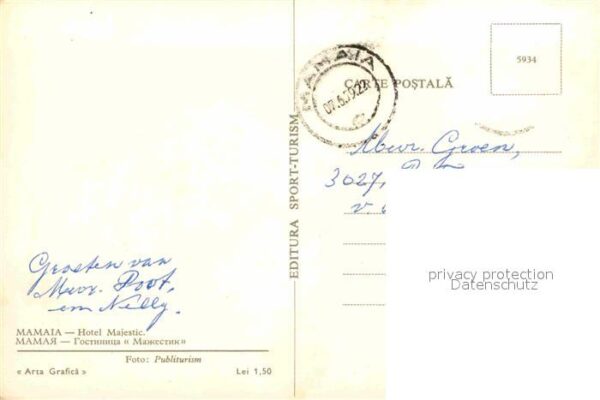 Groeten van
Mevr. Poot.
en Nelly.
MAMAIA — Hotel Majestic.
МАМАЯ — Гостиница « Мажестик»
Foto: Publiturism
« Arta Grafică »
Lei 1,50
EDITURA SPORT-TURISM
MAMAIA
CARTE POȘTALĂ
5934
Mevr. Groen,
3027,
v.
privacy protection
Datenschutz